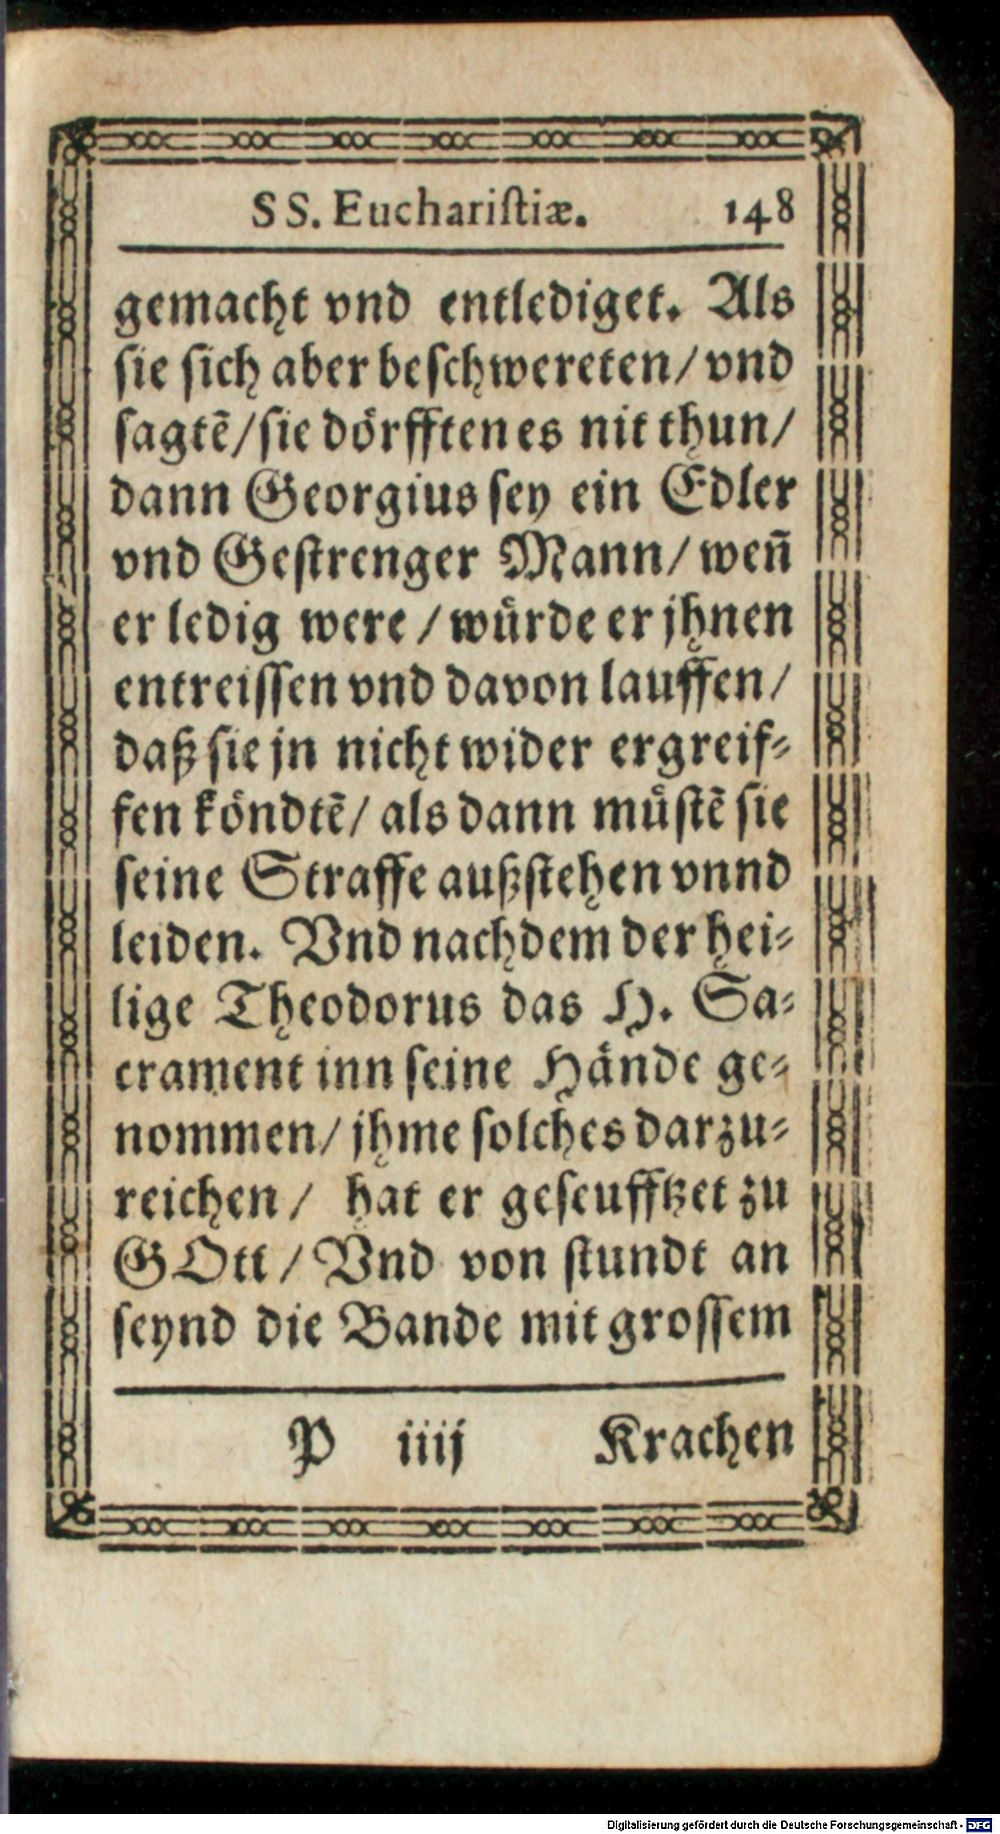 SS. Euchariſtiæ. 148
gemacht vnd entlediget. Als
ſie ſich aber beſchwereten/ vnd
ſagtẽ/ ſie dörfften es nit thun/
dann Georgius ſey ein Edler
vnd Geſtrenger Mann/ wen̄
er ledig were / wuͤrde er jhnen
entreiſſen vnd davon lauffen/
daß ſie jn nicht wider ergreif⸗
fen köndtẽ/ als dann muͤſtẽ ſie
ſeine Straffe außſtehen vnnd
leiden. Vnd nachdem der hei⸗
lige Theodorus das H. Sa⸗
crament inn ſeine Haͤnde ge⸗
nommen/ jhme ſolches darzu⸗
reichen/ hat er geſeufftzet zu
GOtt / Vnd von ſtundt an
ſeynd die Bande mit groſſem
P iiij Krachen
Digitalisierung gefördert durch die Deutsche Forschungsgemeinschaft - DFG